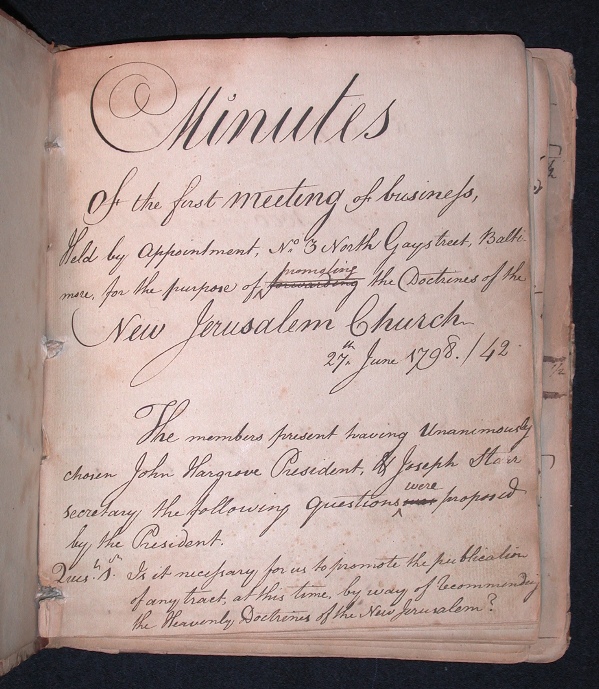 Minutes
Of the first meeting of business,
Held by Appointment, No. 3 North Gaystreet, Balti-
more, for the purpose of promoting forwarding the Doctrines of the
New Jerusalem Church
27th June 1798./42
The members present having Unanimously
chosen John Hargrove President, & Joseph Starr
secretary the following Questions were was proposed
by the President.
Quesn. 1st. Is it necessary for us to promote the publication
of any tract, at this time, by way of recommending
the Heavenly Doctrines of the New Jerusalem?